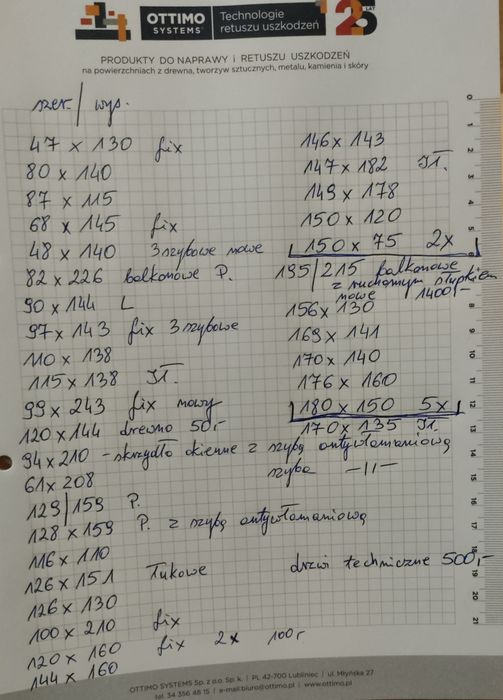 OTTIMO SYSTEMS
Technologie
retuszu uszkodzeń
125 LAT
PRODUKTY DO NAPRAWY i RETUSZU USZKODZEŃ
na powierzchniach z drewna, tworzyw sztucznych, metalu, kamienia i skóry
szer/wys.
47 x 130 fix
80 x 140
87 x 115
68 x 145 fix
48 x 140 3szybowe nowe
82 x 226 balkonowe P.
90 x 144 L
97 x 143 fix 3szybowe
110 x 138
115 x 138 JT.
99 x 243 fix nowy
120 x 144 drewno 50,-
94 x 210 - skrzydło okienne z szybą antywłamaniową
61 x 208 szyba -11-
129/159 P.
128 x 159 P. z szybą antywłamaniową
116 x 110
126 x 151 Łukowe
126 x 130
100 x 210 fix
120 x 160 fix 2x 100r
144 x 160
146 x 143
147 x 182 JT.
149 x 178
150 x 120
150 x 75 2x
195/215 balkonowe
z ruchomym słupkiem
nowe 1400,-
156 x 130
169 x 141
170 x 140
176 x 160
180 x 150 5x
170 x 135 JT.
drzwi techniczne 500,-
0
1
2
3
4
5
6
8
9
10
11
12
13
14
15
16
17
18
19
20
21
OTTIMO SYSTEMS Sp. z o.o. Sp. k. | PL 42-700 Lubliniec | ul. Młyńska 27
tel. 34 356 48 15 | e-mail:biuro@ottimo.pl | www.ottimo.pl